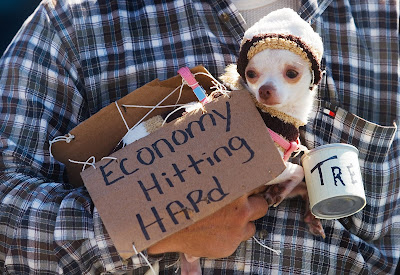 Economy
Hitting
HARD